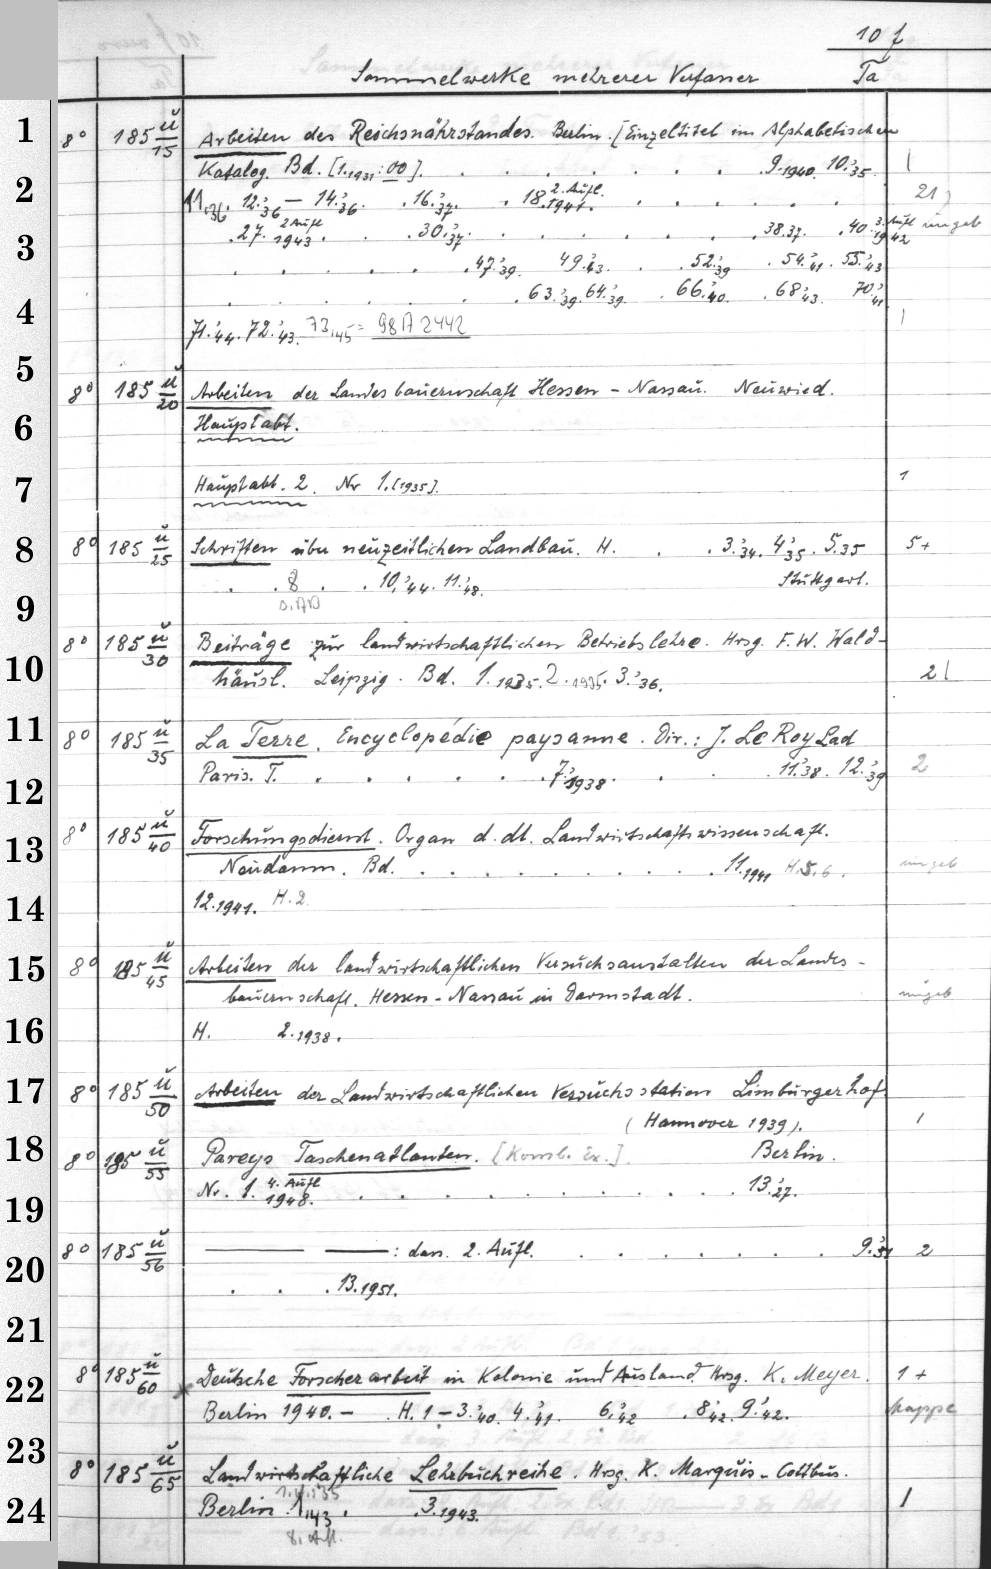 10 f
Sammelwerke mehrerer Verfasser Ta
1 8° 185 ŭ/15 Arbeiten des Reichsnährstandes. Berlin. [Einzeltitel im Alphabetischen
Katalog. Bd. [1.1931:00]. . . . . . . 9.1940. 10.'35. 1
2 11.'36. 12.'36 – 14.'36. . 16.'37. . 18. 2. Aufl. 1941. . . . . . . 21)
. 27. 2 Aufl 1943 . . 30.'37 . . . . . . . 38.37. . 40. 3. Aufl 1942 ungeb
3 . . . . . . 47.'39. 49.'43. . 52.'39 . 54.'41. 55.'43
. . . . . . . 63.'39. 64.'39. . 66.'40. . 68.'43. 70.'41.
4 71.'44. 72.'43. 73.'45 = 98 A 2442 1
5 8° 185 ŭ/20 Arbeiten der Landesbauernschaft Hessen – Nassau. Neuwied.
6 Hauptabt.
7 Hauptabt. 2. Nr 1. [1935]. 1
8 8° 185 ŭ/25 Schriften über neuzeitlichen Landbau. H. . . 3.'34. 4.'35. 5.35 5+
. . 8 . . 10.'44. 11.'48. Stuttgart.
9
10 8° 185 ŭ/30 Beiträge zur landwirtschaftlichen Betriebslehre. Hrsg. F. W. Wald-
häusl. Leipzig. Bd. 1.1935. 2.1935. 3.'36. 2 1
11 8° 185 ŭ/35 La Terre. Encyclopédie paysanne. Dir.: J. Le Roy Lad
12 Paris. T. . . . . . . 7.'1938. . . . 11.'38. 12.'39 2
13 8° 185 ŭ/40 Forschungsdienst. Organ d. dt. Landwirtschaftswissenschaft.
Neudamm. Bd. . . . . . . . . . 11.1941 H.5.6. ungeb
14 12.1941. H.2
15 8° 185 ŭ/45 Arbeiten der landwirtschaftlichen Versuchsanstalten der Landes-
bauernschaft. Hessen-Nassau in Darmstadt. ungeb
16 H. 2.1938.
17 8° 185 ŭ/50 Arbeiten der Landwirtschaftlichen Versuchsstation Limburgerhof
(Hannover 1939). 1
18 8° 185 ŭ/55 Pareys Taschenatlanten. [Komb. Ex.]. Berlin.
19 Nr. 1. 4. Aufl 1948. . . . . . . . . . 13.'27.
20 8° 185 ŭ/56 ——— ——— : dass. 2. Aufl. . . . . . . 9.'51 2
. . . 13.1951.
21
22 8° 185 ŭ/60 Deutsche Forscherarbeit in Kolonie und Ausland. Hrsg. K. Meyer. 1 +
Berlin 1940. – . H. 1 – 3.'40. 4.'41. 6.'42 . 8.'42. 9.'42. Mappe
23 8° 185 ŭ/65 Landwirtschaftliche Lehrbuchreihe. Hrsg. K. Marquis-Cottbus.
24 Berlin. 1.'43. . 3.1943. 1
8. Afl.